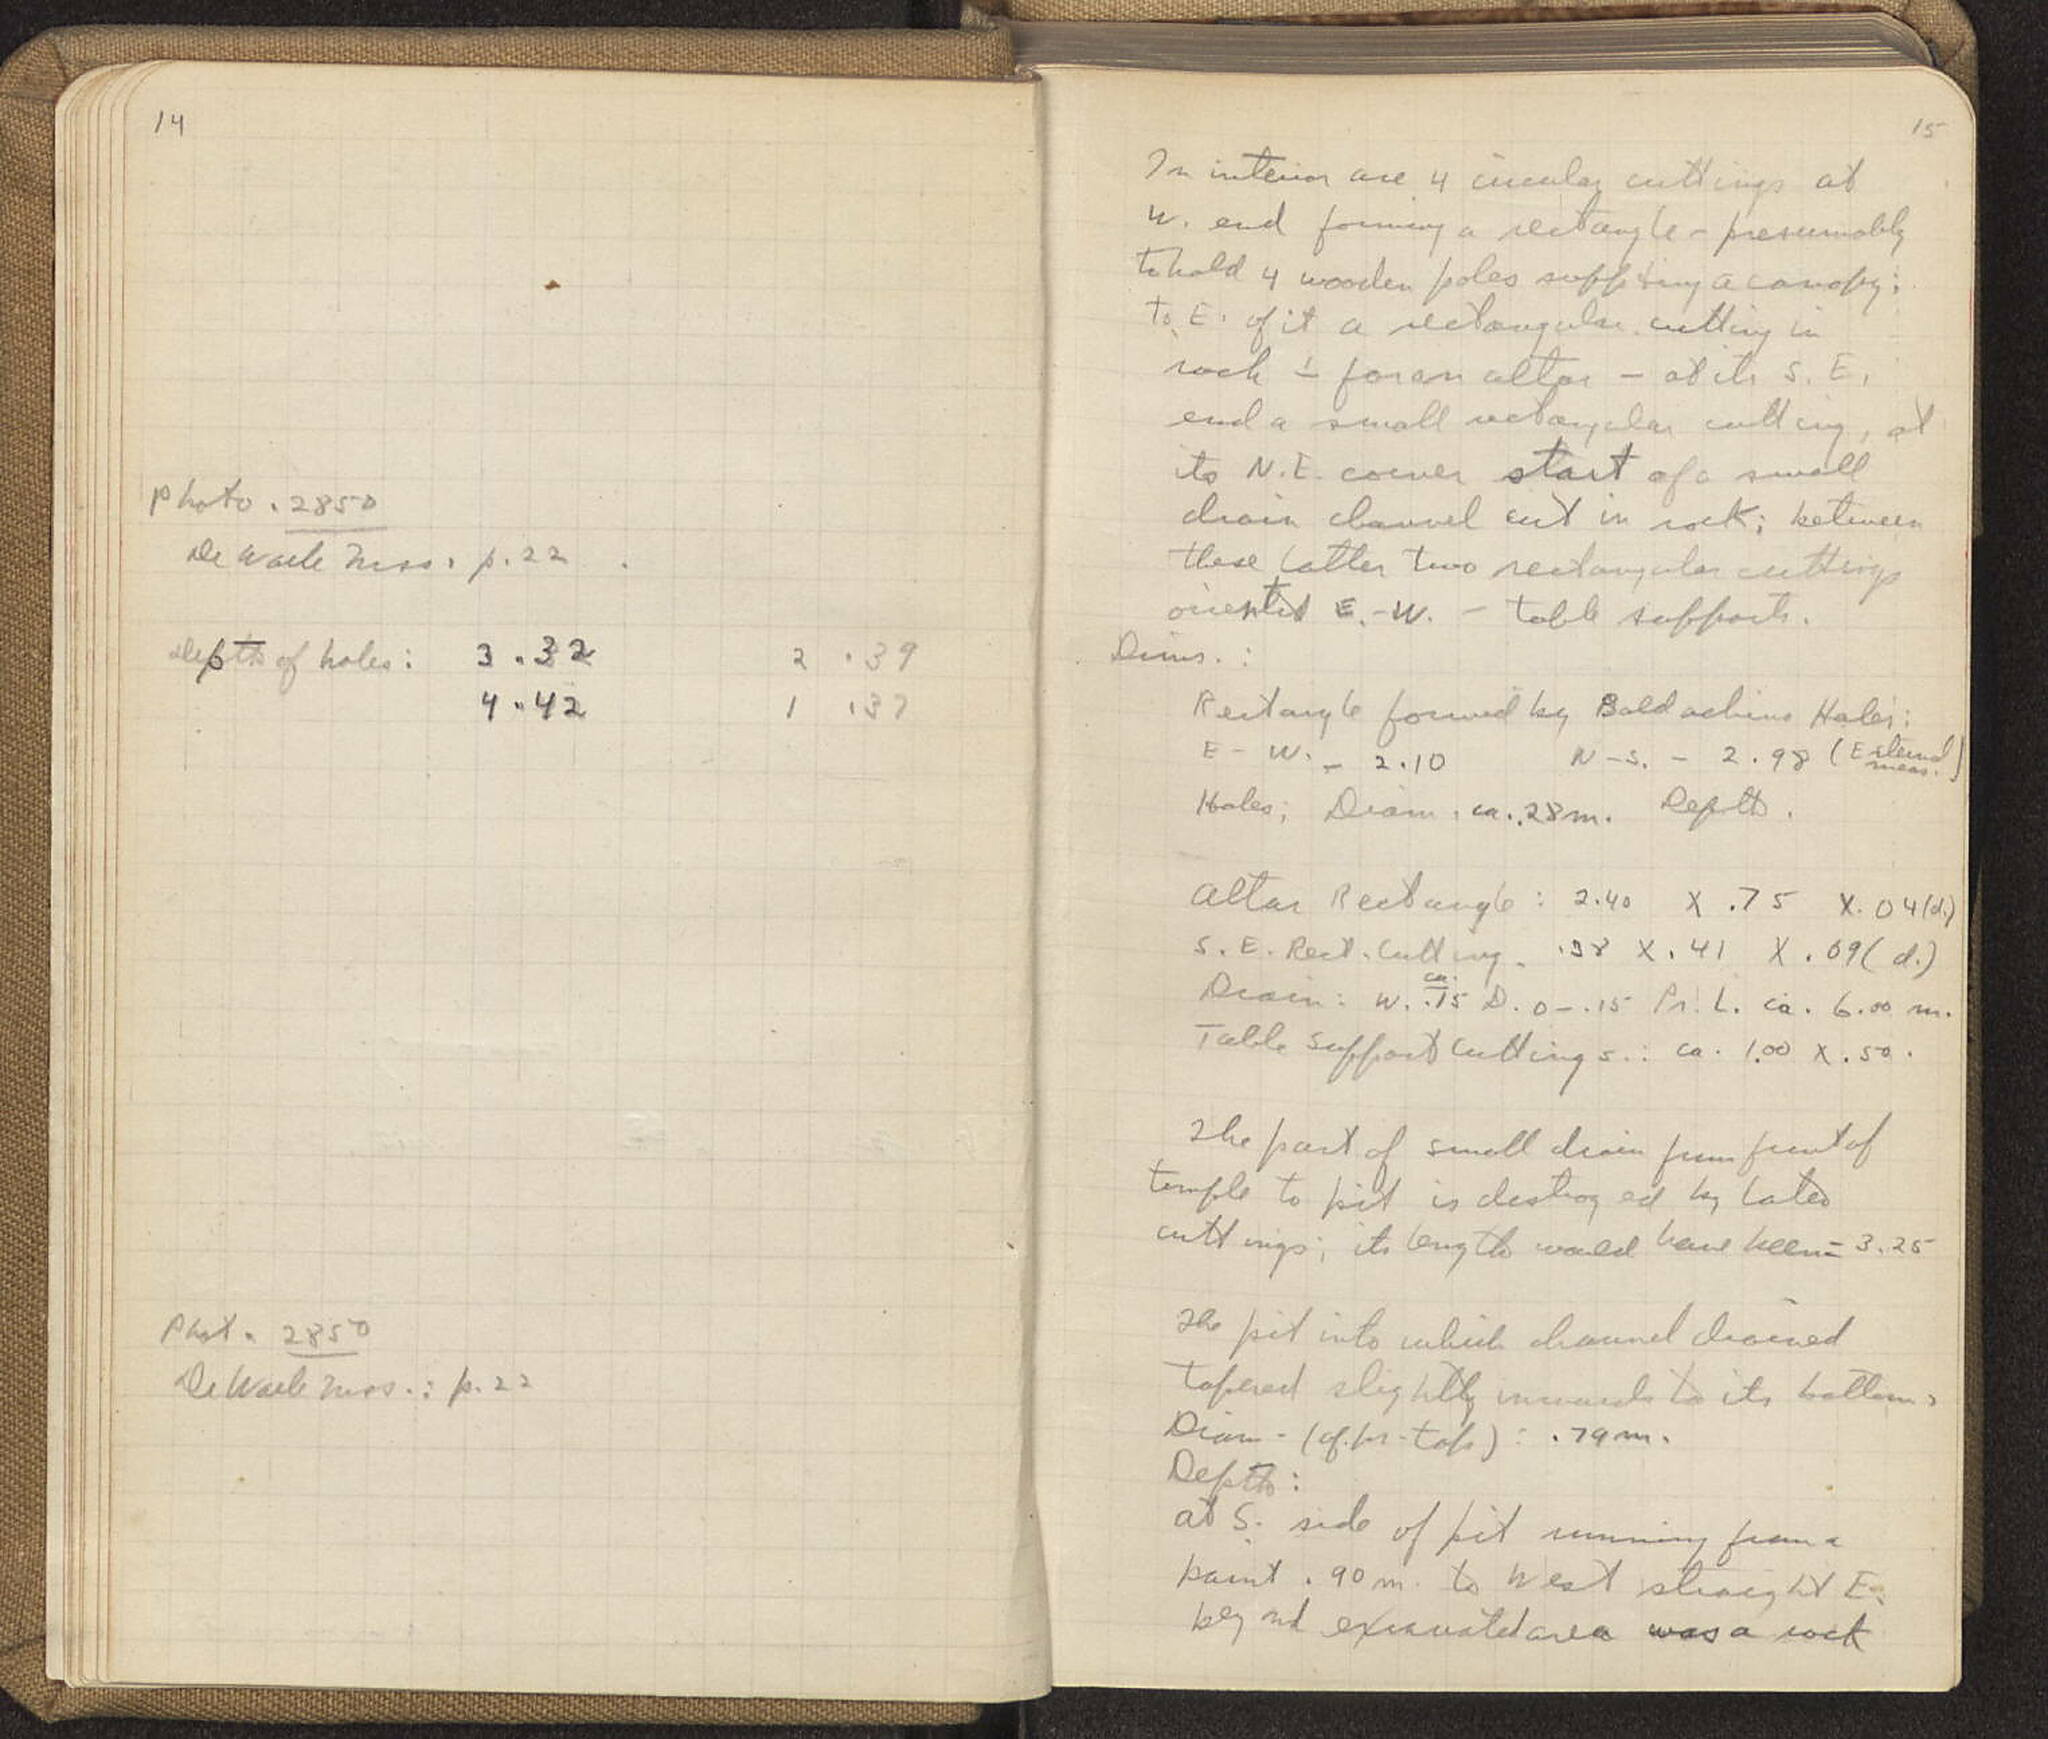 14
Photo. 2850
De Waele Mss. p. 22
Depths of holes: 3 .32 2 .39
4 .42 1 .37
Phot. 2850
De Waele Mss.: p. 22
15
In interior are 4 circular cuttings at
W. end forming a rectangle - presumably
to hold 4 wooden poles supporting a canopy;
to E. of it a rectangular cutting in
rock ± for an altar - at its S.E.
end a small rectangular cutting, at
its N.E. corner start of a small
drain channel cut in rock; between
these latter two rectangular cuttings
oriented E.-W. - table supports.
Dims.:
Rectangle formed by Baldachino Holes:
E - W. - 2.10 N - S. - 2.98 (External meas.)
Holes; Diam. ca. .28 m. Depth.
Altar Rectangle: 2.40 X .75 X .04 (d.)
S.E. Rect. Cutting. .38 X .41 X .09 (d.)
Drain: W. ca. .15 D. 0 - .15 Pr. L. ca. 6.00 m.
Table Support Cuttings.: ca. 1.00 X .50.
The part of small drain from front of
temple to pit is destroyed by later
cuttings; its length would have been = 3.25
The pit into which channel drained
tapered slightly inwards to its bottom;
Diam - (of pr. top): .79 m.
Depth:
at S. side of pit running from a
point .90 m. to West straight E.
beyond excavated area was a rock